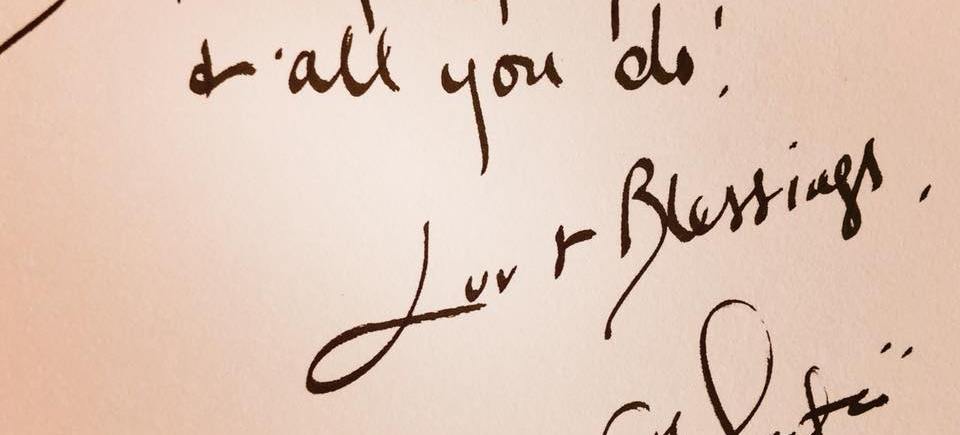 & all you do!
Luv & Blessings,